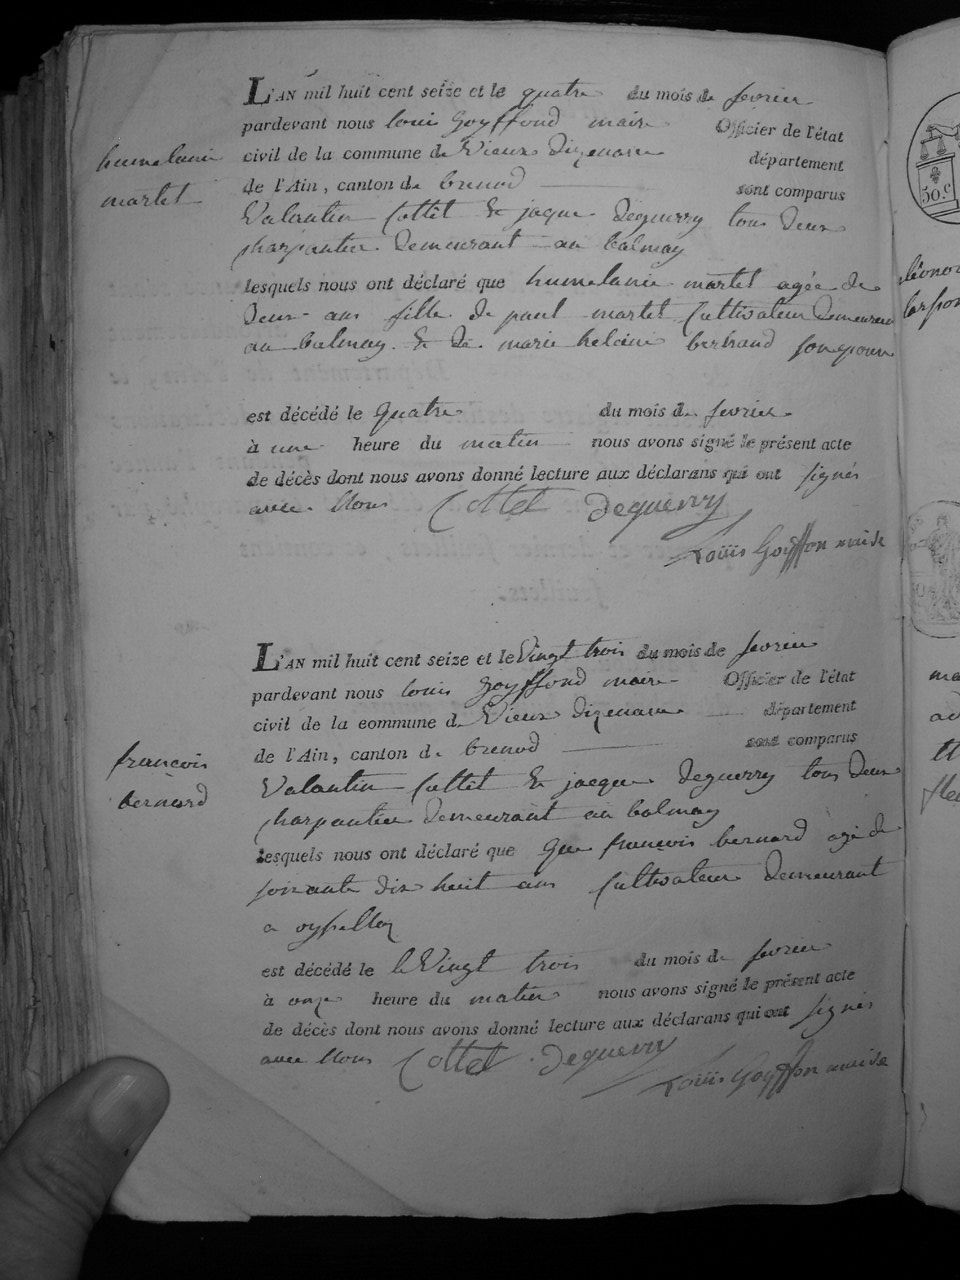 L'AN mil huit cent seize et le quatre du mois de fevrier
pardevant nous louis Goyffond maire Officier de l'état
civil de la commune de Vieux dizenave département
de l'Ain, canton de brenod sont comparus
humelanie
martet
Valantin Cottet & jaque deguerry tous deux
charpantier demeurant au balmay
lesquels nous ont déclaré que humelanie martet agée de
deux ans fille de paul martet Cultivateur demeurant
au balmay & de marie helaine bertrand son epouse
est décédé le quatre du mois de fevrier
à une heure du matin nous avons signé le présent acte
de décès dont nous avons donné lecture aux déclarans qui ont signés
avec Nous Cottet deguerry
Louis Goyffon maire
L'AN mil huit cent seize et le Vingt trois du mois de fevrier
pardevant nous louis Goyffond maire Officier de l'état
civil de la commune de Vieux dizenave département
de l'Ain, canton de brenod sont comparus
françois
bernard
Valantin Cottet & jacque deguerry tous deux
charpantier demeurant au balmay
lesquels nous ont déclaré que que françois bernard agé de
soixante dix huit ans Cultivateur demeurant
a
est décédé le le Vingt trois du mois de fevrier
à onze heure du matin nous avons signé le présent acte
de décès dont nous avons donné lecture aux déclarans qui ont signés
avec Nous Cottet deguerry
Louis Goyffon maire
50.c